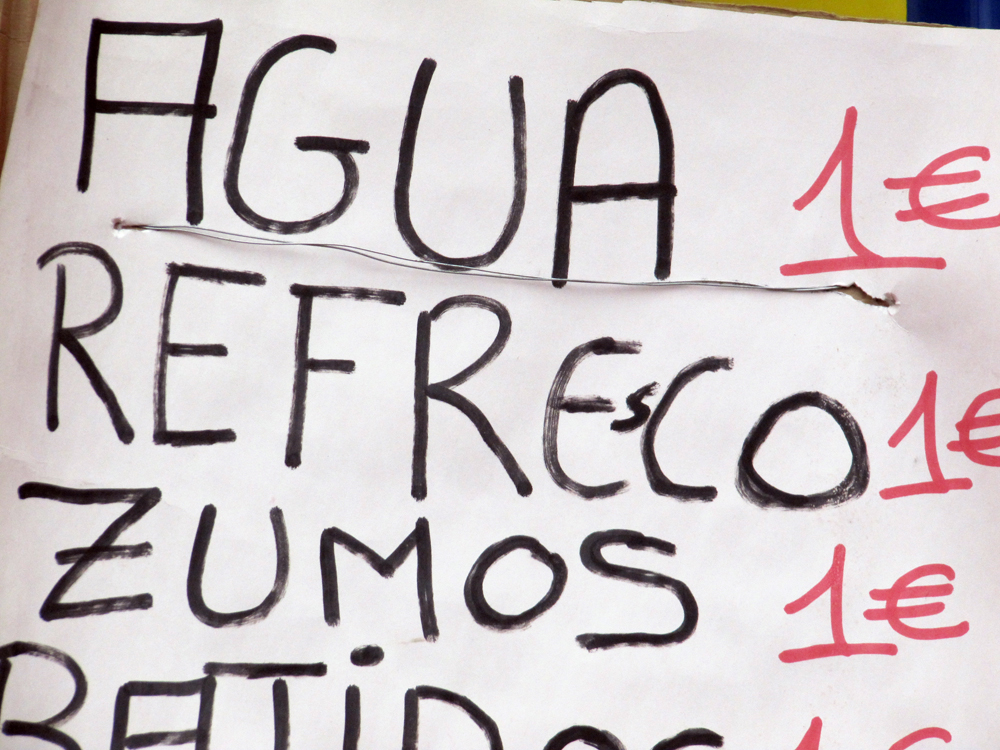 AGUA 1€
REFREsCO 1€
ZUMOS 1€
BATiDOS 1€